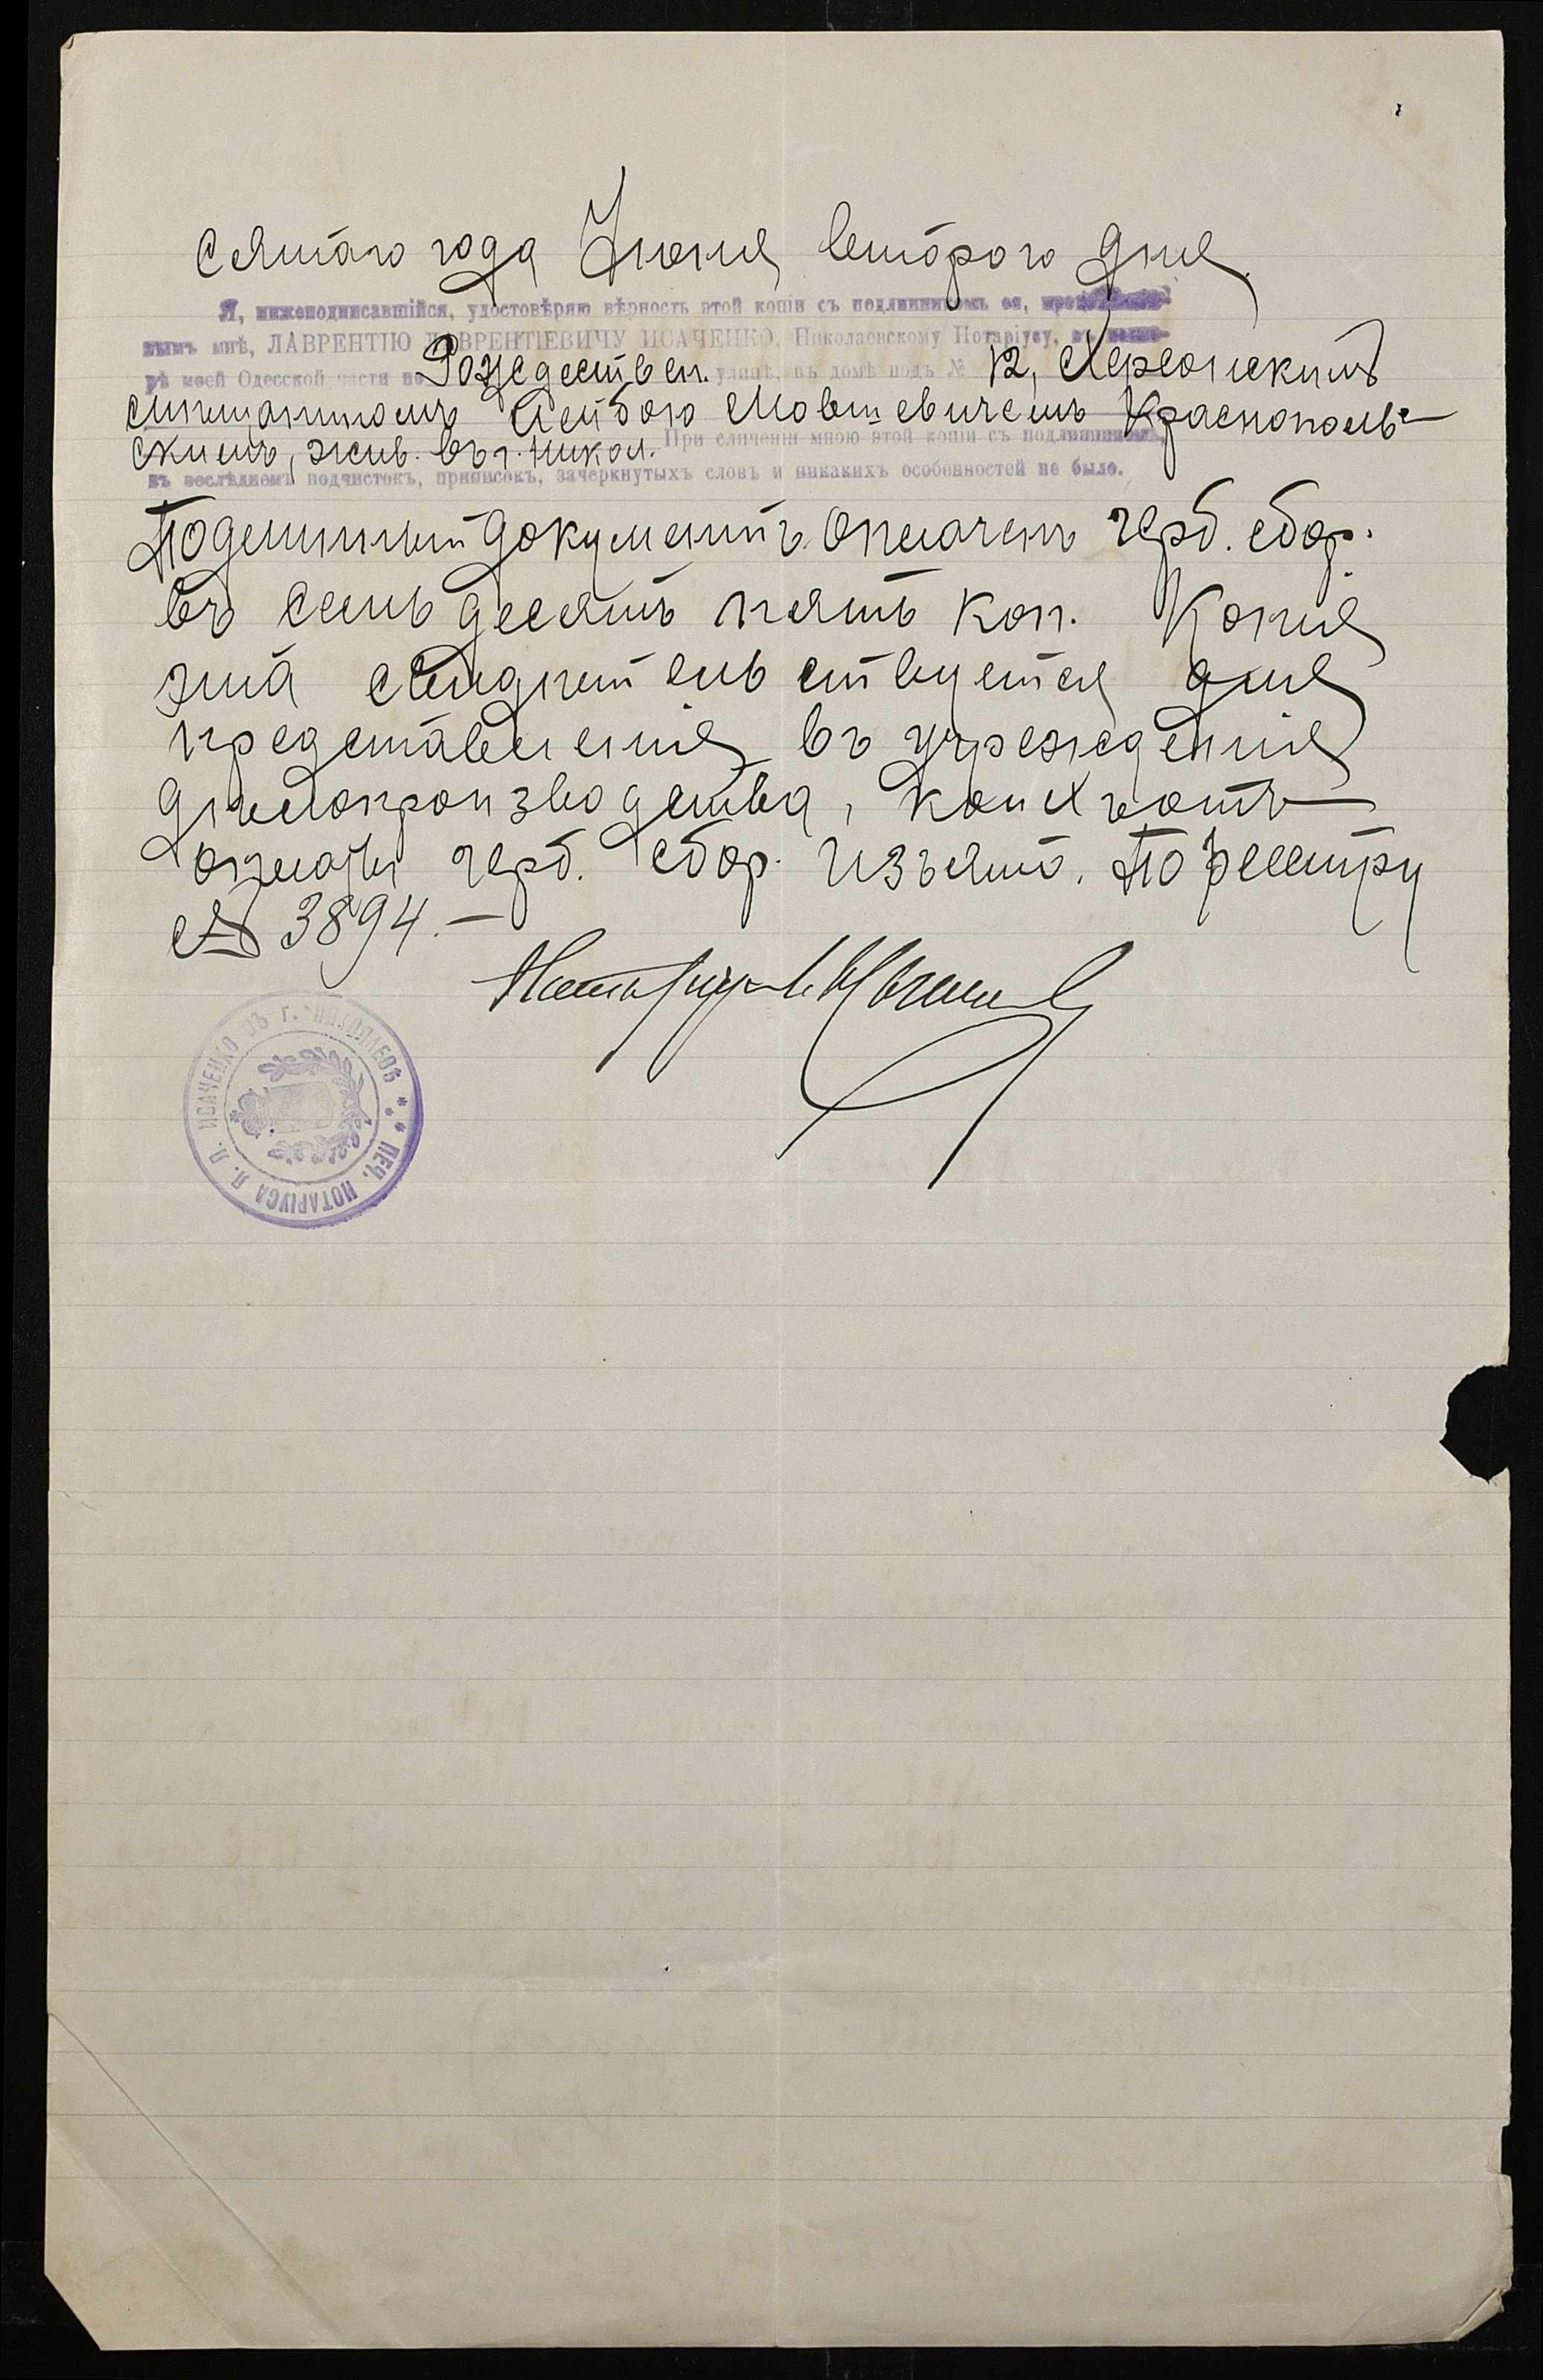 сятаго года Июня второго дня.
Я, нижеподписавшійся, удостовѣряю вѣрность этой копіи съ подлинникомъ ея, представлен-
нымъ мнѣ, ЛАВРЕНТІЮ ЛАВРЕНТІЕВИЧУ ИСАЧЕНКО, Николаевскому Нотаріусу, въ конто-
рѣ моей Одесской части по Рождествен. улицѣ, въ домѣ подъ № 12, Херсонскимъ
мѣщаниномъ Лейбою Мовшевичемъ Краснополь-
скимъ, жив. въ г. Никол. При сличеніи мною этой копіи съ подлинникомъ,
въ послѣднемъ подчистокъ, приписокъ, зачеркнутыхъ словъ и никакихъ особенностей не было.
Подлинный документъ оплаченъ герб. сбор.
въ семьдесятъ пять коп. Копія
эта свидѣтельствуется для
представленія въ учрежденія
дѣлопроизводства, коихъ отъ
оплаты герб. сбор. изъято. По реестру
№ 3894.—
Нотаріусъ Л. Исаченко
ПЕЧ. НОТАРІУСА Л. Л. ИСАЧЕНКО ВЪ Г. НИКОЛАЕВѢ